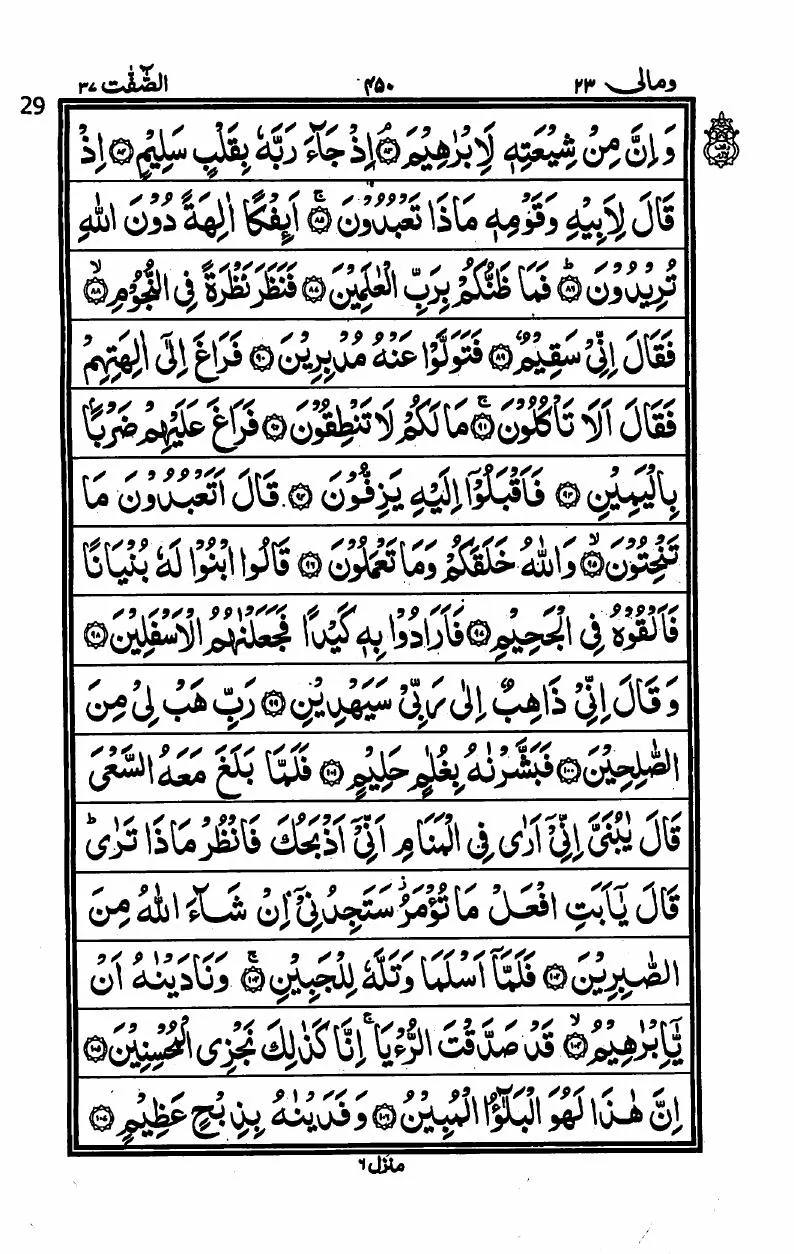 ومالی ٢٣
۴۵۰
الصّٰٓفّٰت ٣٧
29
وَاِنَّ مِنْ شِيْعَتِهٖ لَاِبْرٰهِيْمَ ۝٨٣ اِذْ جَآءَ رَبَّهٗ بِقَلْبٍ سَلِيْمٍ ۝٨٤ اِذْ
قَالَ لِاَبِيْهِ وَقَوْمِهٖ مَاذَا تَعْبُدُوْنَ ۝٨٥ۚ اَئِفْكًا اٰلِهَةً دُوْنَ اللّٰهِ
تُرِيْدُوْنَ ۝٨٦ؕ فَمَا ظَنُّكُمْ بِرَبِّ الْعٰلَمِيْنَ ۝٨٧ فَنَظَرَ نَظْرَةً فِي النُّجُوْمِ ۝٨٨ۙ
فَقَالَ اِنِّيْ سَقِيْمٌ ۝٨٩ فَتَوَلَّوْا عَنْهُ مُدْبِرِيْنَ ۝٩٠ فَرَاغَ اِلٰٓى اٰلِهَتِهِمْ
فَقَالَ اَلَا تَاْكُلُوْنَ ۝٩١ۚ مَا لَكُمْ لَا تَنْطِقُوْنَ ۝٩٢ فَرَاغَ عَلَيْهِمْ ضَرْبًۢا
بِالْيَمِيْنِ ۝٩٣ فَاَقْبَلُوْٓا اِلَيْهِ يَزِفُّوْنَ ۝٩٤ قَالَ اَتَعْبُدُوْنَ مَا
تَنْحِتُوْنَ ۝٩٥ۙ وَاللّٰهُ خَلَقَكُمْ وَمَا تَعْمَلُوْنَ ۝٩٦ قَالُوا ابْنُوْا لَهٗ بُنْيَانًا
فَاَلْقُوْهُ فِي الْجَحِيْمِ ۝٩٧ فَاَرَادُوْا بِهٖ كَيْدًا فَجَعَلْنٰهُمُ الْاَسْفَلِيْنَ ۝٩٨
وَقَالَ اِنِّيْ ذَاهِبٌ اِلٰى رَبِّيْ سَيَهْدِيْنِ ۝٩٩ رَبِّ هَبْ لِيْ مِنَ
الصّٰلِحِيْنَ ۝١٠٠ فَبَشَّرْنٰهُ بِغُلٰمٍ حَلِيْمٍ ۝١٠١ فَلَمَّا بَلَغَ مَعَهُ السَّعْيَ
قَالَ يٰبُنَيَّ اِنِّيْٓ اَرٰى فِي الْمَنَامِ اَنِّيْٓ اَذْبَحُكَ فَانْظُرْ مَاذَا تَرٰىؕ
قَالَ يٰٓاَبَتِ افْعَلْ مَا تُؤْمَرُؗ سَتَجِدُنِيْٓ اِنْ شَآءَ اللّٰهُ مِنَ
الصّٰبِرِيْنَ ۝١٠٢ فَلَمَّآ اَسْلَمَا وَتَلَّهٗ لِلْجَبِيْنِ ۝١٠٣ۚ وَنَادَيْنٰهُ اَنْ
يّٰٓاِبْرٰهِيْمُ ۝١٠٤ۙ قَدْ صَدَّقْتَ الرُّءْيَاۚ اِنَّا كَذٰلِكَ نَجْزِي الْمُحْسِنِيْنَ ۝١٠٥
اِنَّ هٰذَا لَهُوَ الْبَلٰٓؤُا الْمُبِيْنُ ۝١٠٦ وَفَدَيْنٰهُ بِذِبْحٍ عَظِيْمٍ ۝١٠٧
منزل ٦